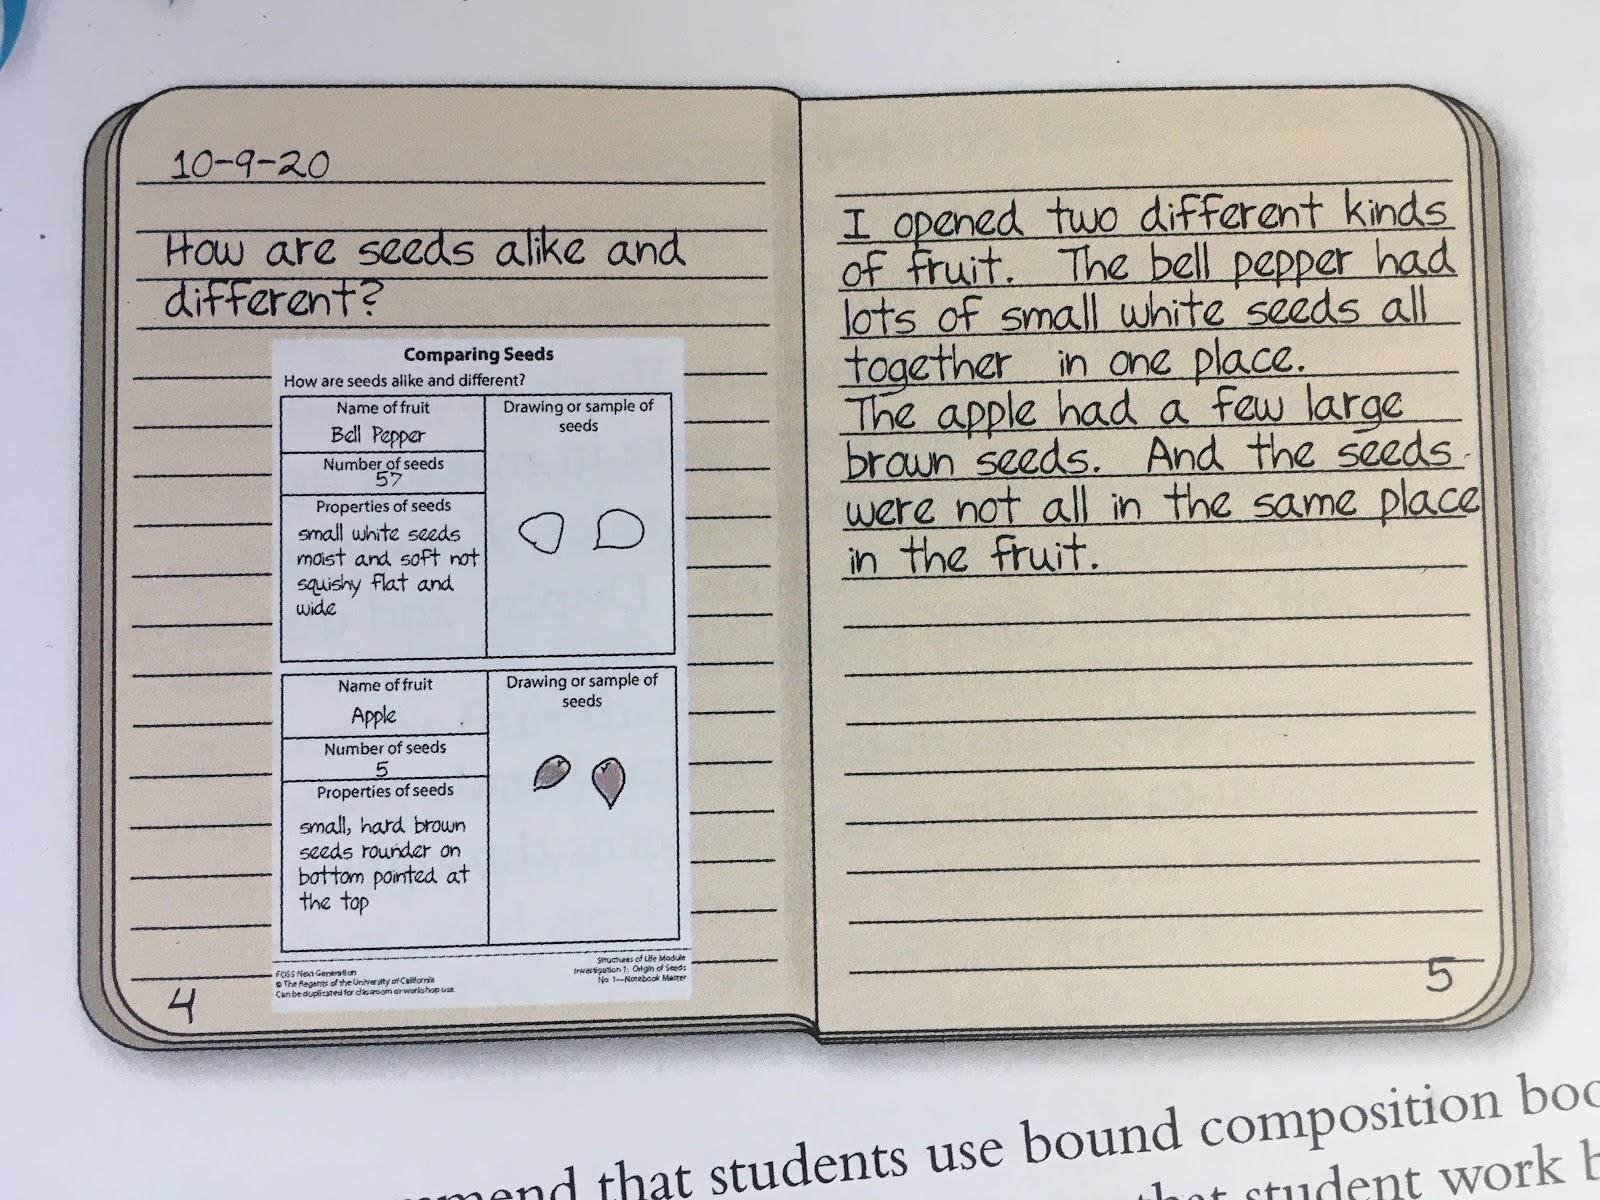 10-9-20
How are seeds alike and
different?
Comparing Seeds
How are seeds alike and different?
Name of fruit
Bell Pepper
Number of seeds
57
Properties of seeds
small white seeds
moist and soft not
squishy flat and
wide
Drawing or sample of
seeds
Name of fruit
Apple
Number of seeds
5
Properties of seeds
small, hard brown
seeds rounder on
bottom pointed at
the top
Drawing or sample of
seeds
FOSS Next Generation
© The Regents of the University of California
Can be duplicated for classroom or workshop use.
Structures of Life Module
Investigation 1: Origin of Seeds
No. 1—Notebook Master
4
I opened two different kinds
of fruit. The bell pepper had
lots of small white seeds all
together in one place.
The apple had a few large
brown seeds. And the seeds
were not all in the same place
in the fruit.
5
that students use bound composition
student work